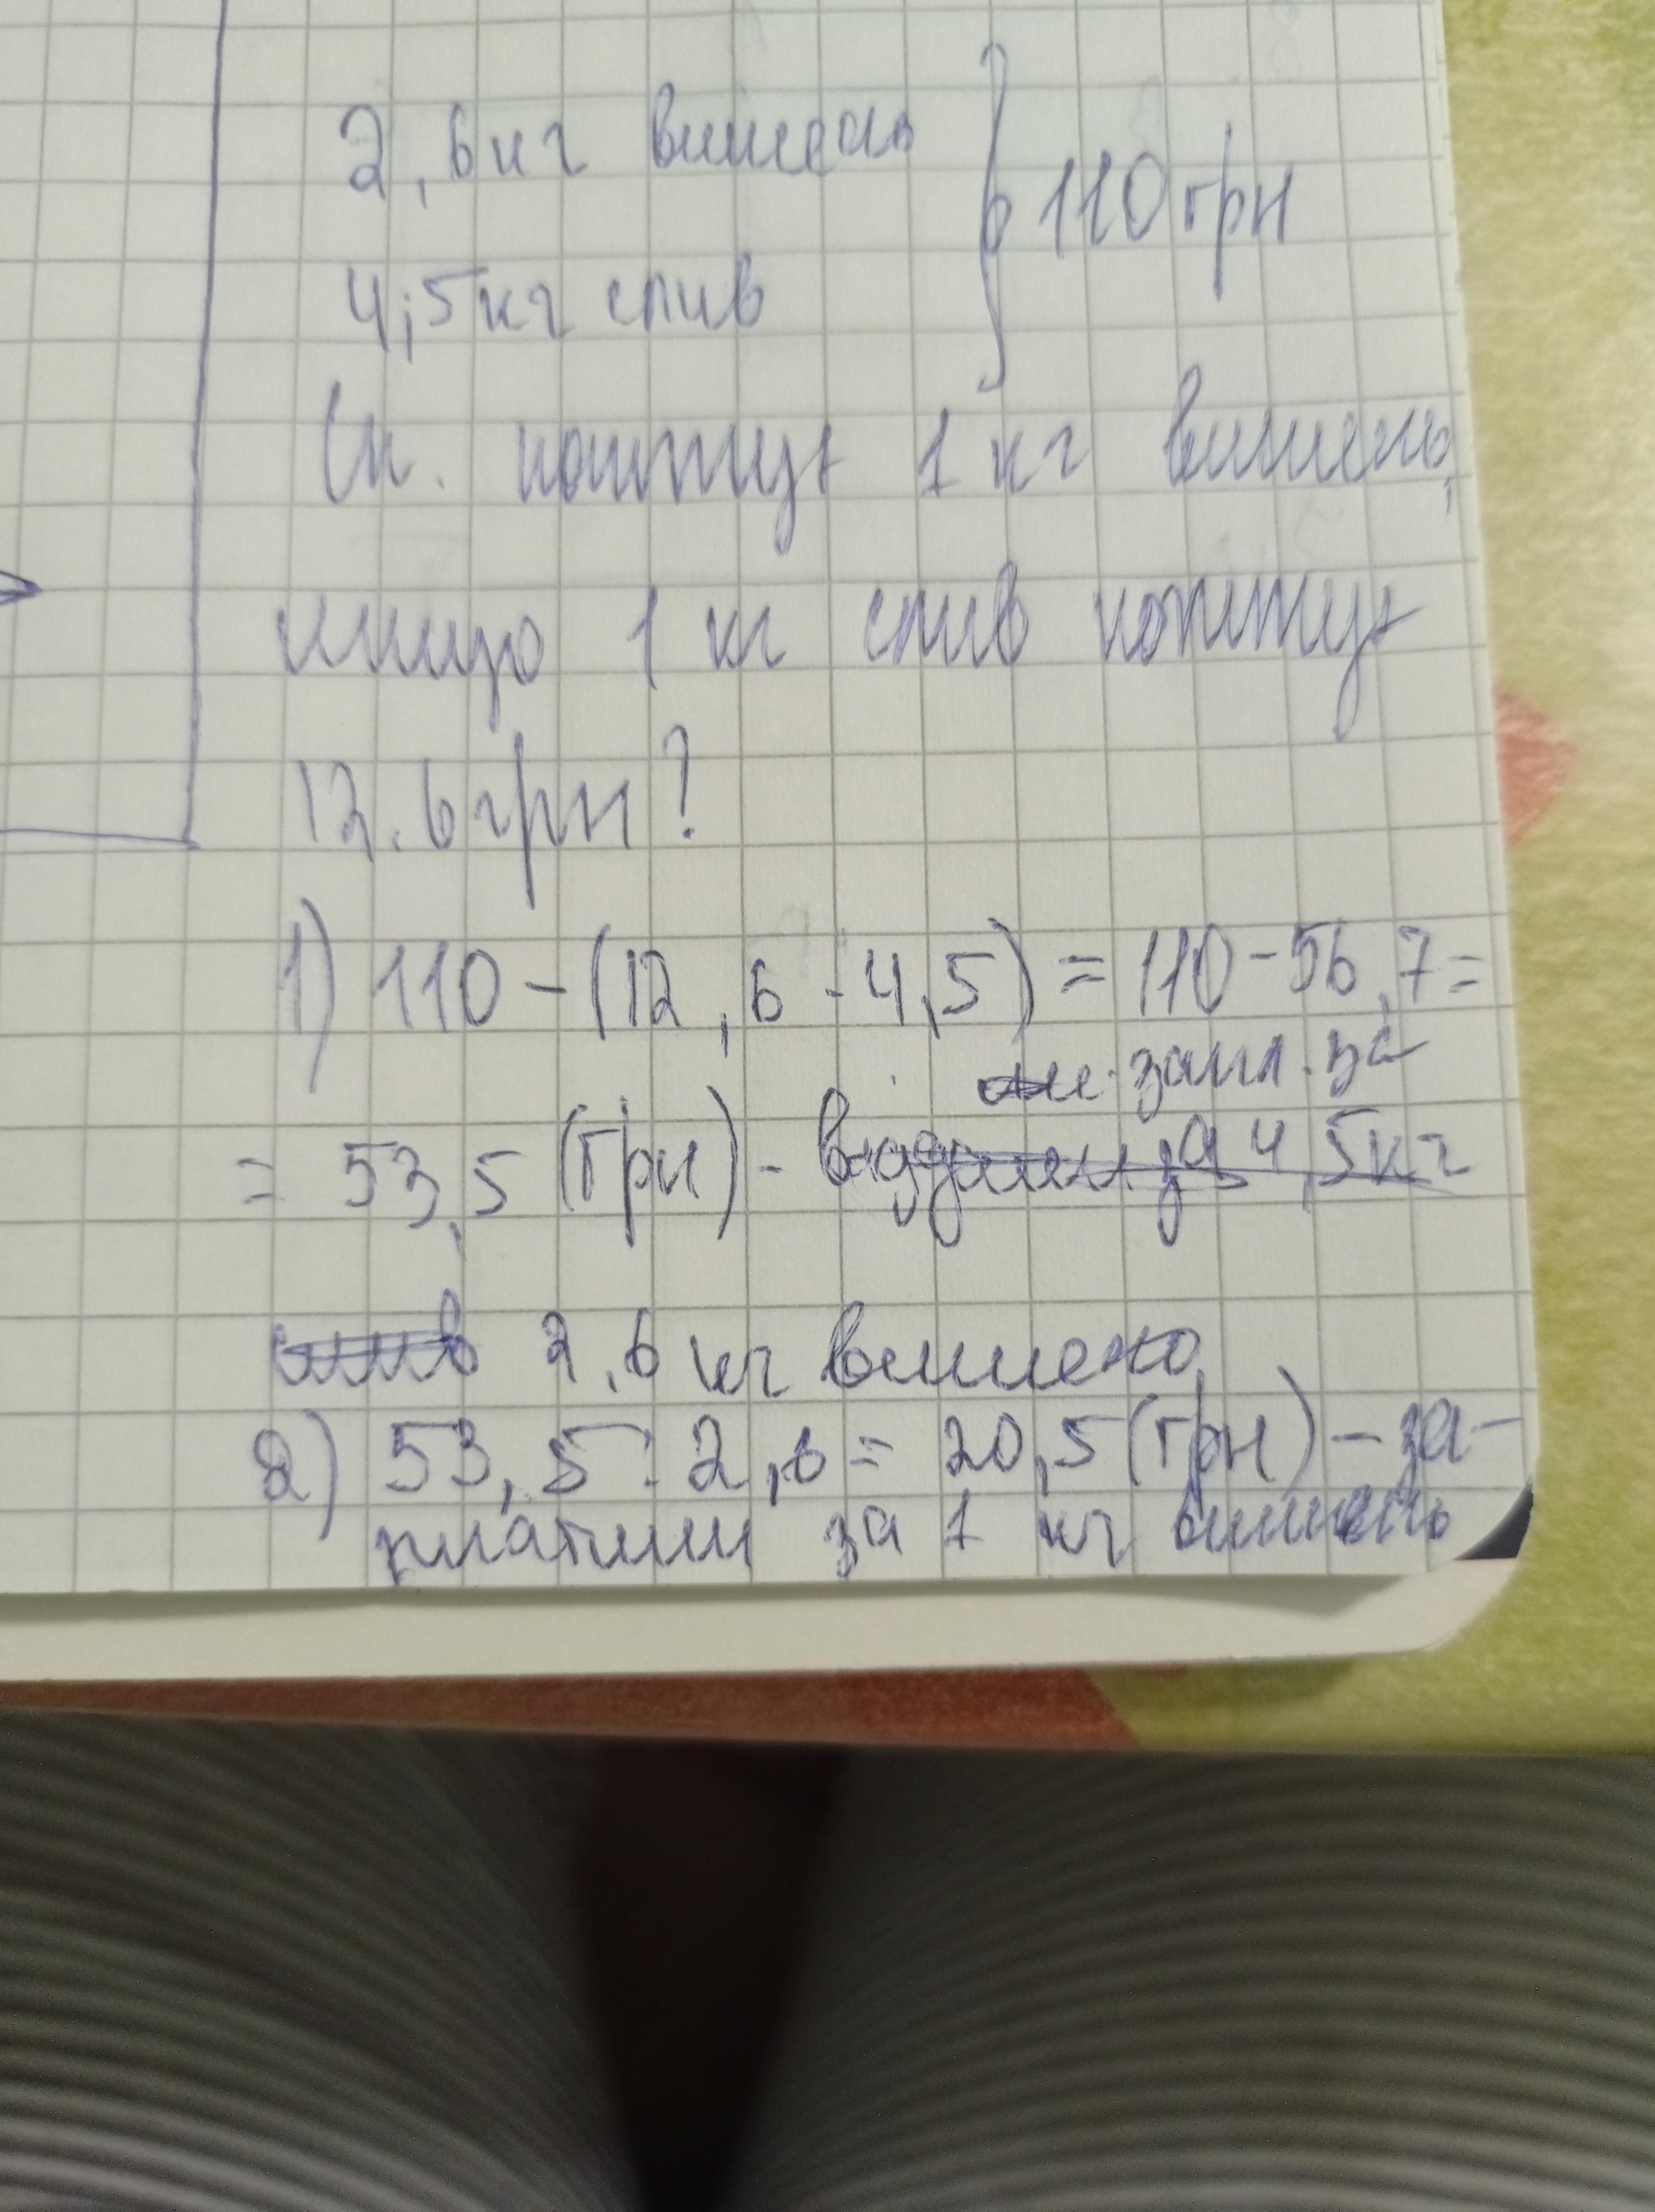 2,6 кг вишень
110 грн
4,5 кг слив
Ск. коштує 1 кг вишень,
якщо 1 кг слив коштує
12.6 грн?
1) 110 - (12,6 · 4,5) = 110 - 56,7 =
запл. за
= 53,5 (грн) - віддали за 4,5 кг
слив 2,6 кг вишень
2) 53,5 : 2,6 = 20,5 (грн) - за-
платили за 1 кг вишень